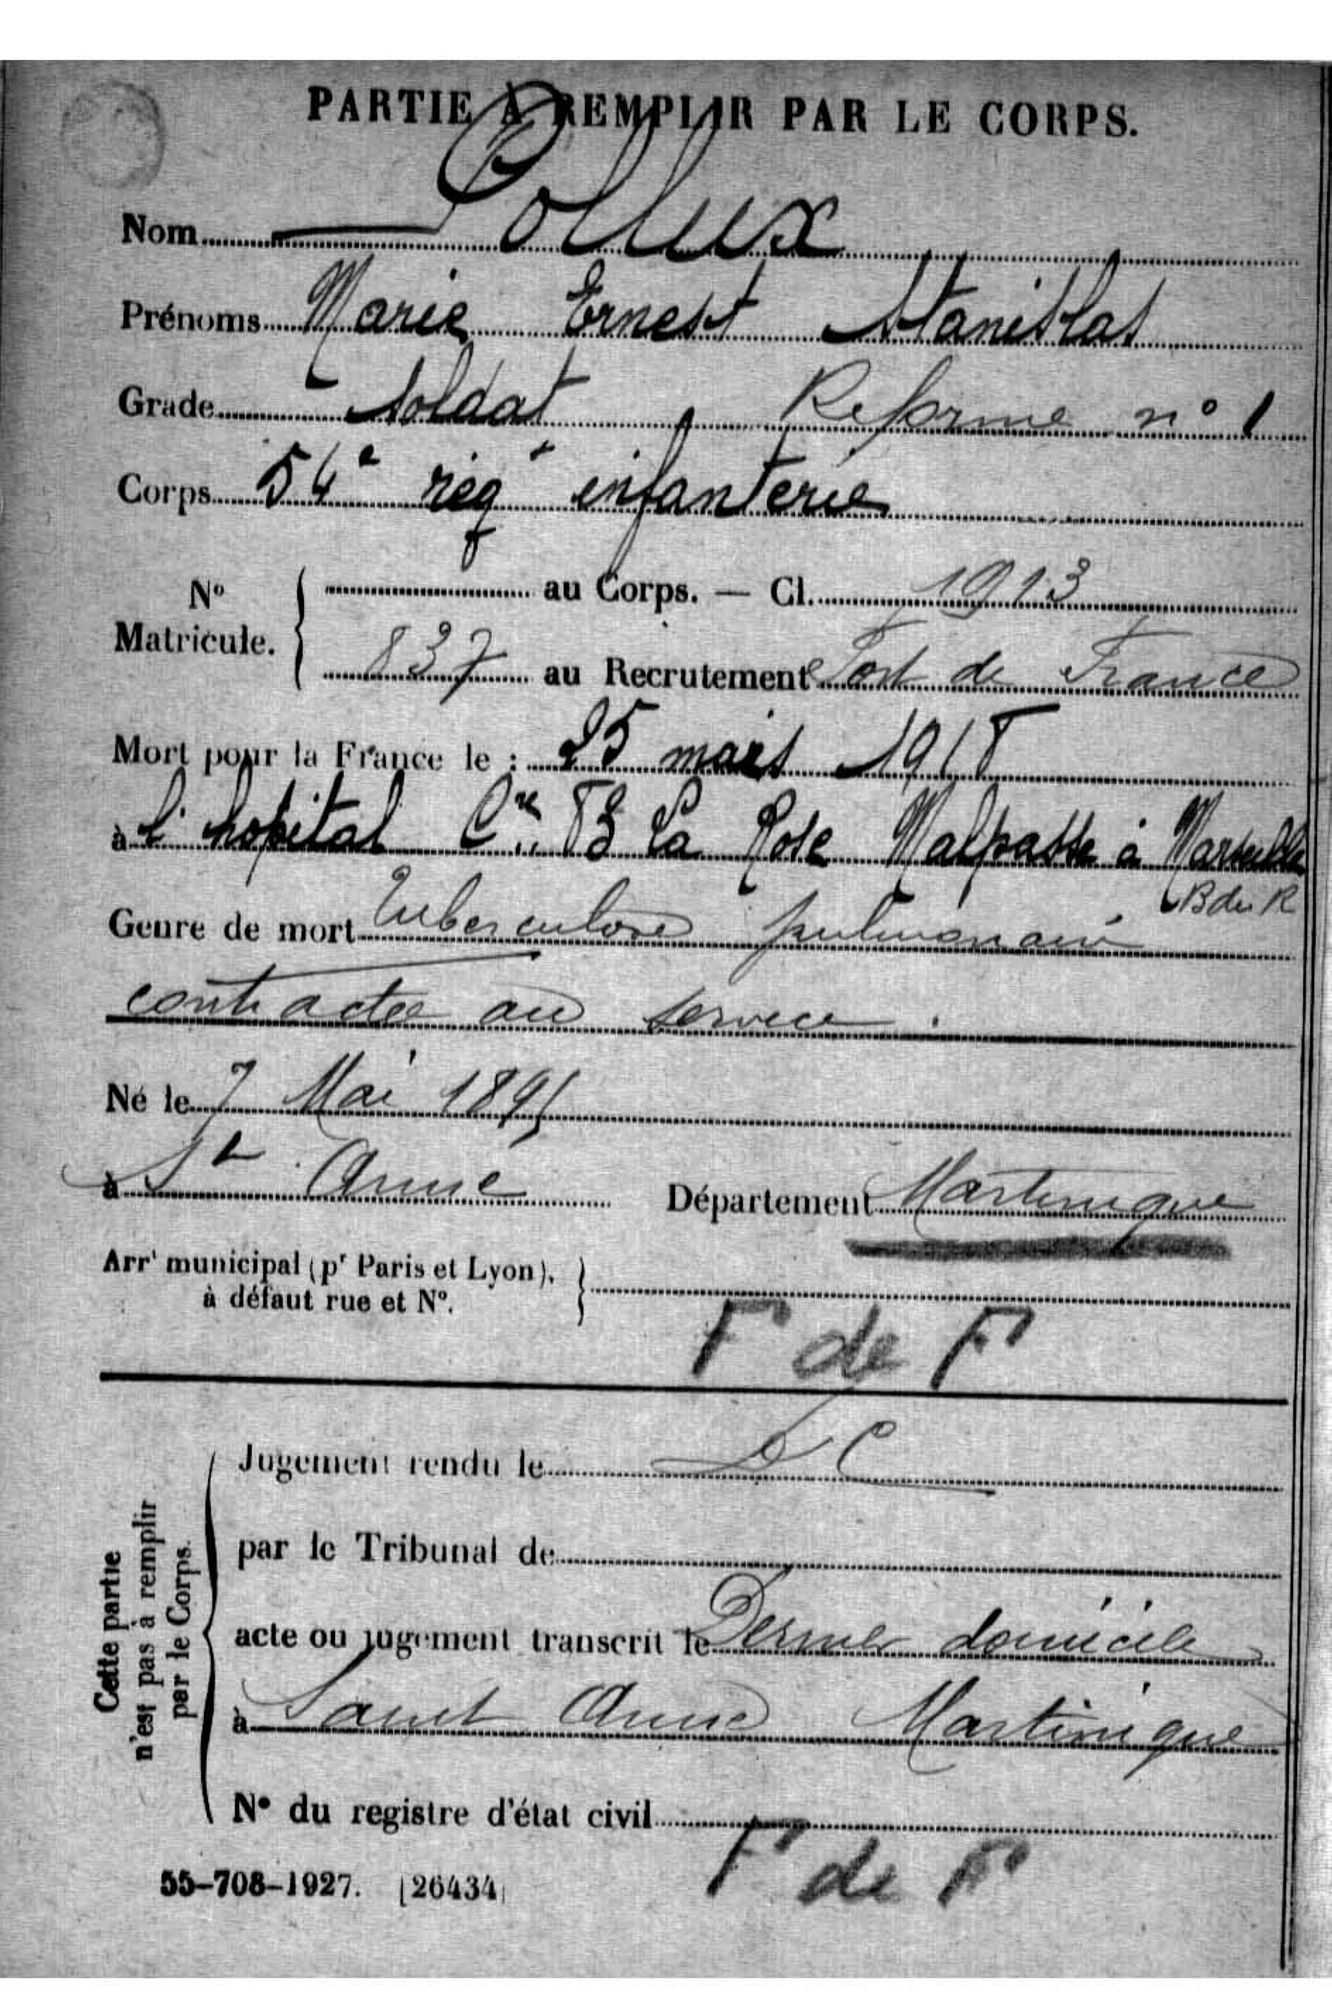 PARTIE À REMPLIR PAR LE CORPS.
Nom Pollux
Prénoms Marie Ernest Stanislas
Grade Soldat Reforme n° 1
Corps 54e régt infanterie
N° Matricule. au Corps. — Cl. 1913
837 au Recrutement Fort de France
Mort pour la France le : 25 mars 1918
à l'hopital Cre 83 La Rose Malpasse à Marseille
B du R
Genre de mort Tuberculose pulmonaire
contractée au service.
Né le 7 Mai 1895
à Ste Anne Département Martinique
Arrt municipal (pr Paris et Lyon),
à défaut rue et N°.
F de F
Jugement rendu le D C
par le Tribunal de
acte ou jugement transcrit le Dernier domicile
à Saint Anne Martinique
N° du registre d'état civil
F de F
Cette partie
n'est pas à remplir
par le Corps.
55-708-1927. [26434]